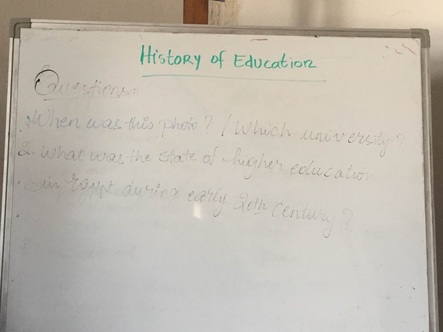 History of Education
Questions:
1. When was this photo? / Which university?
2. What was the state of higher education
in Egypt during early 20th century?